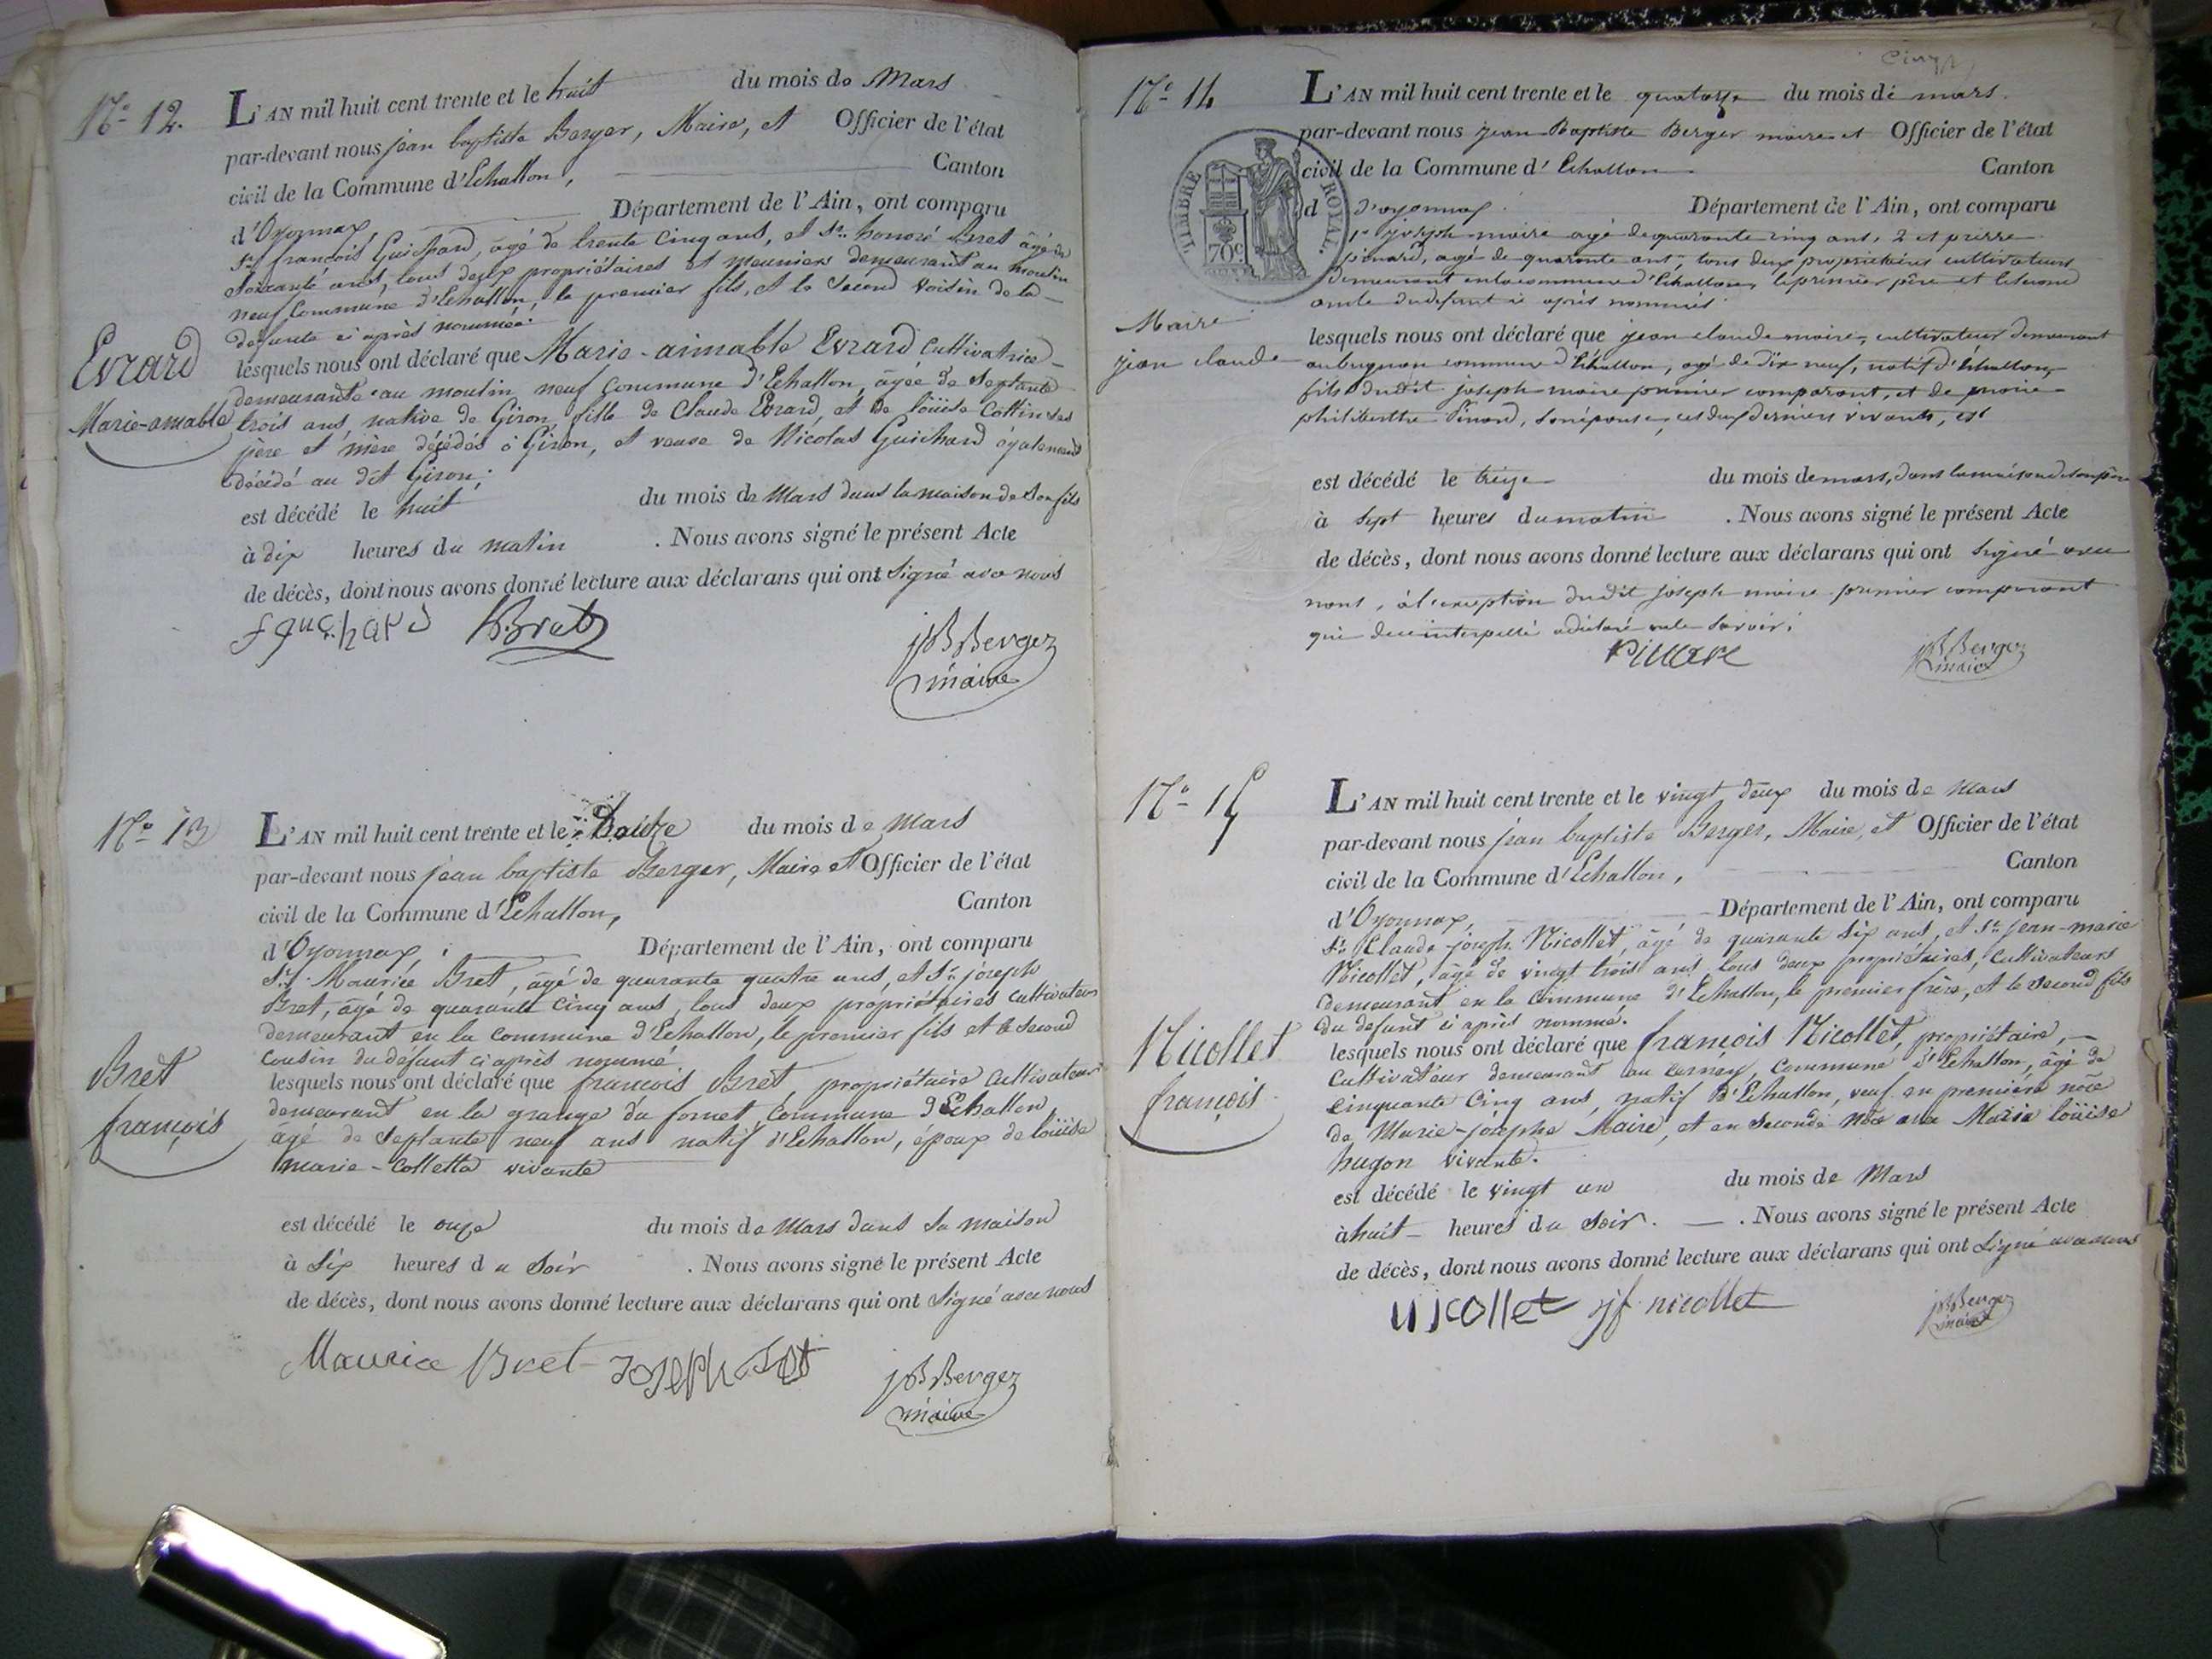 N.o 12.
L'AN mil huit cent trente et le huit du mois de Mars
par-devant nous jean baptiste Berger, Maire, et Officier de l'état
civil de la Commune d'Echallon, Canton
d'Oyonnax, Département de l'Ain, ont comparu
Sr. françois Guichard, âgé de trente cinq ans, et Sr. honoré Bret âgé de
soixante ans, tous deux propriétaires et meuniers demeurant au moulin
neuf commune d'Echallon, le premier fils, et le second voisin de la
defunte ci après nommée.
Evrard
Marie-amable
lesquels nous ont déclaré que Marie-aimable Evrard cultivatrice
demeurante au moulin neuf commune d'Echallon, âgée de septante
trois ans, native de Giron, fille de Claude Evrard, et de loüise Collin ses
père et mère décédés à Giron, et veuve de Nicolas Guichard également
décédé au dit Giron;
est décédé le huit du mois de Mars dans la maison de son fils
à dix heures du matin . Nous avons signé le présent Acte
de décès, dont nous avons donné lecture aux déclarans qui ont signé avec nous
f guichard h. Bret
jB Berger
maire
N.o 13
L'AN mil huit cent trente et le douze du mois de Mars
par-devant nous jean baptiste Berger, Maire et Officier de l'état
civil de la Commune d'Echallon, Canton
d'Oyonnax, Département de l'Ain, ont comparu
Sr. Maurice Bret, âgé de quarante quatre ans, et Sr. joseph
Bret, âgé de quarante cinq ans, tous deux propriétaires cultivateurs
demeurant en la commune d'Echallon, le premier fils et le second
cousin du défunt ci après nommé
Bret
françois
lesquels nous ont déclaré que françois Bret propriétaire cultivateur
demeurant en la grange du fornet commune d'Echallon
âgé de septante neuf ans natif d'Echallon, époux de loüise
marie-Colletta vivante
est décédé le onze du mois de Mars dans sa maison
à six heures du soir . Nous avons signé le présent Acte
de décès, dont nous avons donné lecture aux déclarans qui ont signé avec nous
Maurice Bret joseph Bret
jB Berger
maire
N.o 14
L'AN mil huit cent trente et le quatorze du mois de mars.
par-devant nous jean Baptiste Berger maire et Officier de l'état
civil de la Commune d'Echallon Canton
d d'oyonnax. Département de l'Ain, ont comparu
TIMBRE ROYAL.
70c
1o joseph maire agé de quarante cinq ans, 2 et pierre
pinard, agé de quarante ans, tous deux propriétaires cultivateurs
demeurant en la commune d'Echallon, le premier père et le second
oncle du defunt ci après nommés
Maire
jean claude
lesquels nous ont déclaré que jean claude maire, cultivateur demeurant
commune d'Echallon, agé de dix neuf, natif d'Echallon,
fils dudit joseph maire premier comparant, et de marie
philiberthe Pinard, son épouse, ces deux derniers vivants, est
est décédé le treize du mois de mars, dans la maison de son père
à sept heures du matin . Nous avons signé le présent Acte
de décès, dont nous avons donné lecture aux déclarans qui ont signé avec
nous, à l'exception dudit joseph maire premier comparant
qui de ce interpellé a déclaré ne le savoir.
Pinard
jB Berger
maire
N.o 15
L'AN mil huit cent trente et le vingt deux du mois de Mars
par-devant nous jean baptiste Berger, Maire, et Officier de l'état
civil de la Commune d'Echallon, Canton
d'Oyonnax, Département de l'Ain, ont comparu
Sr. Claude-joseph Nicollet, âgé de quarante six ans, et Sr. jean-marie
Nicollet, âgé de vingt trois ans tous deux propriétaires, cultivateurs
demeurant en la commune d'Echallon, le premier frère, et le second fils
du defunt ci après nommé.
Nicollet
françois
lesquels nous ont déclaré que françois Nicollet, propriétaire,
cultivateur demeurant au cernay, commune d'Echallon, âgé de
cinquante cinq ans, natif d'Echallon, veuf en première nôce
de Marie-josephe Maire, et en seconde nôce avec Marie loüise
hugon vivante.
est décédé le vingt un du mois de Mars
à huit heures du soir. . Nous avons signé le présent Acte
de décès, dont nous avons donné lecture aux déclarans qui ont signé avec nous
nicollet jf nicollet
jB Berger
maire